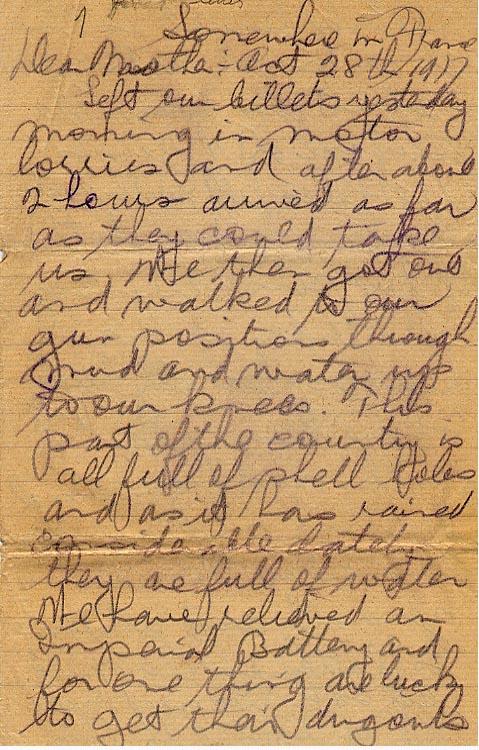 1
Somewhere in France
Dear Martha:- Oct 28th/1917
Left our billets yesterday
morning in motor
lorries and after about
2 hours arrived as far
as they could take
us. We then got out
and walked to our
gun positions through
mud and water up
to our knees. This
part of the country is
all full of shell holes
and as it has rained
considerable lately
they are full of water
We have relieved an
Imperial Battery and
for one thing are lucky
to get their dugouts